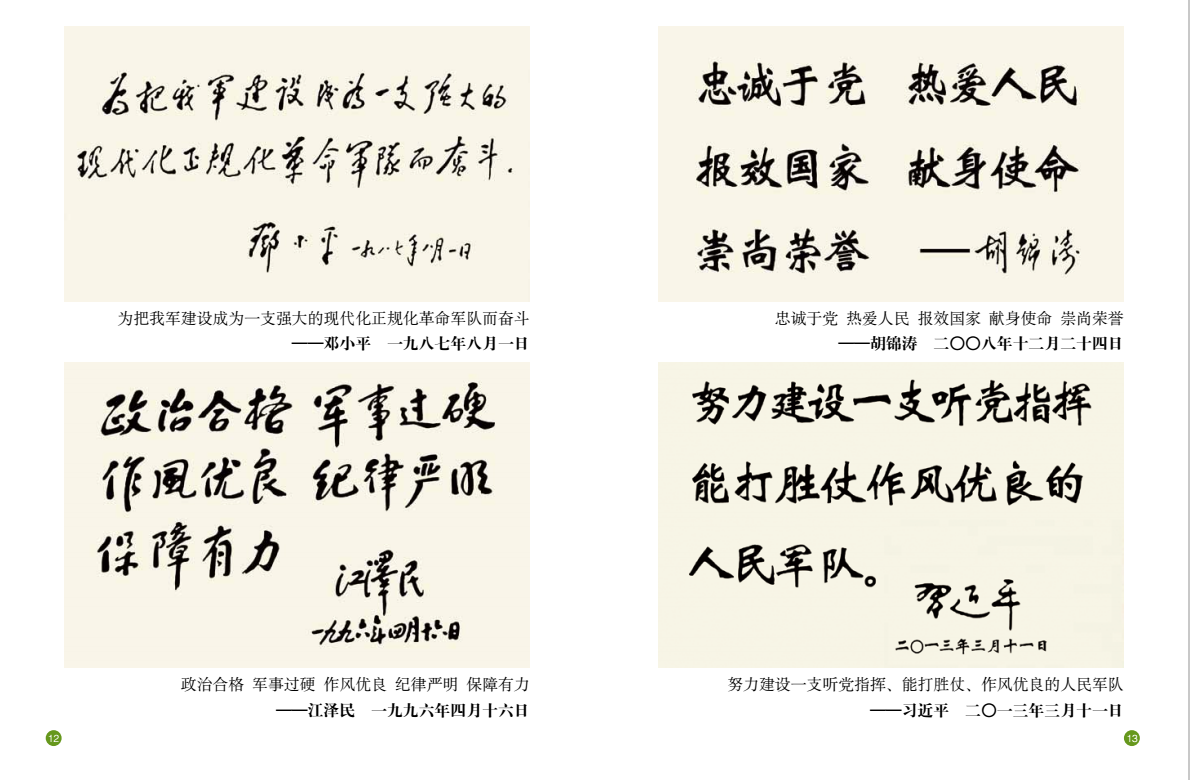 为把我军建设成为一支强大的
现代化正规化革命军隊而奋斗.
鄧小平 一九八七年八月一日
为把我军建设成为一支强大的现代化正规化革命军队而奋斗
——邓小平 一九八七年八月一日
政治合格 军事过硬
作风优良 纪律严明
保障有力
江澤民
一九九六年四月十六日
政治合格 军事过硬 作风优良 纪律严明 保障有力
——江泽民 一九九六年四月十六日
12
忠诚于党 热爱人民
报效国家 献身使命
崇尚荣誉 ——胡锦涛
忠诚于党 热爱人民 报效国家 献身使命 崇尚荣誉
——胡锦涛 二〇〇八年十二月二十四日
努力建设一支听党指挥
能打胜仗作风优良的
人民军队。
习近平
二〇一三年三月十一日
努力建设一支听党指挥、能打胜仗、作风优良的人民军队
——习近平 二〇一三年三月十一日
13